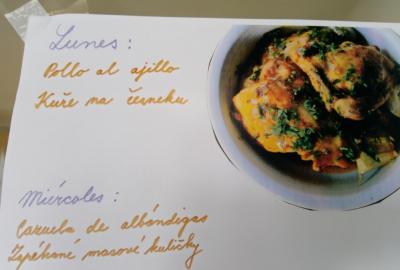 Lunes:
Pollo al ajillo
Kuře na česneku
Miércoles:
Cazuela de albóndigas
Zapékané masové kuličky